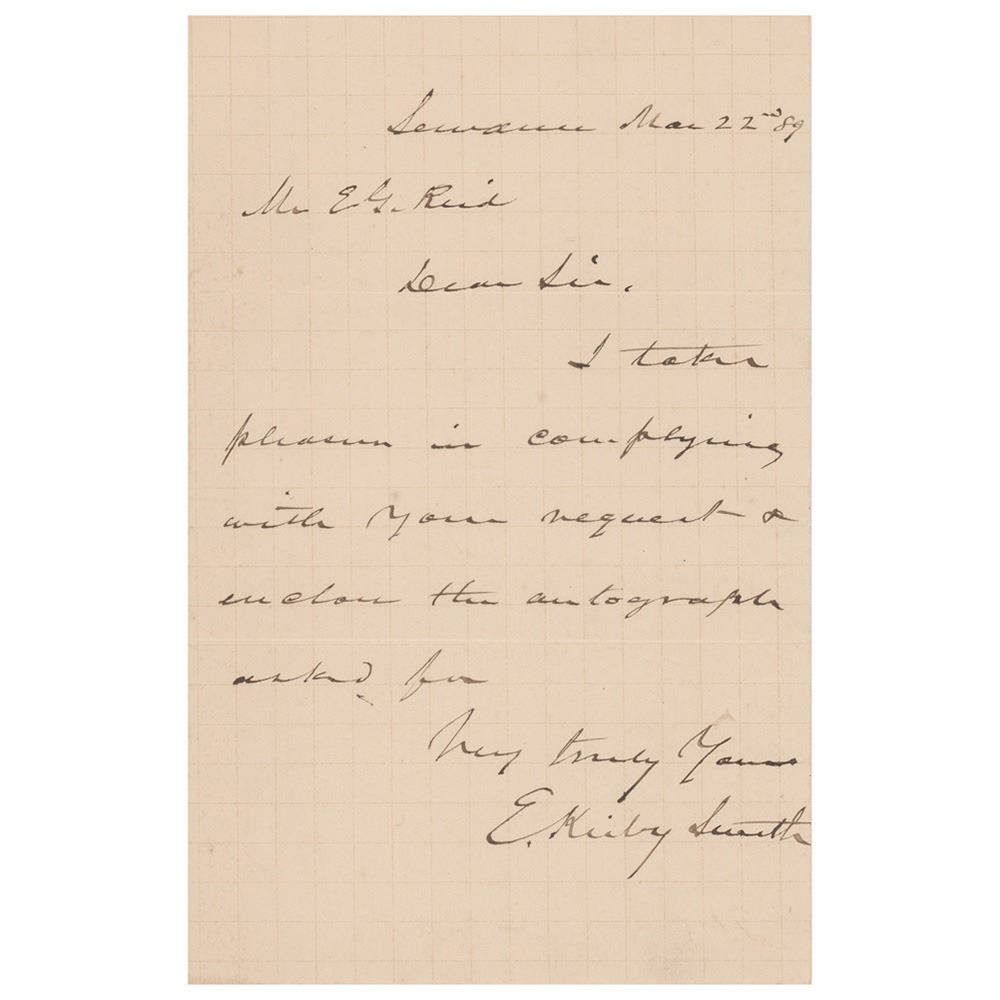 Sewanee Mar 22nd 89
Mr E. G. Reid
Dear Sir.
I take
pleasure in complying
with your request &
enclose the autograph
asked for
Very truly Yours
E. Kirby Smith